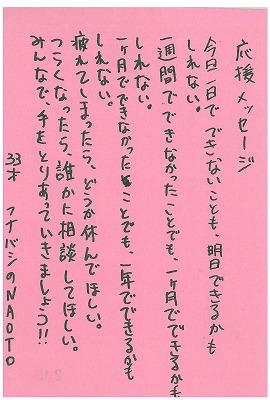 応援メッセージ
今日一日でできないことも、明日できるかも
しれない。
一週間でできなかったことでも、一ヶ月でできるかも
しれない。
一ヶ月でできなかったことでも、一年でできるかも
しれない。
疲れてしまったら、どうか休んでほしい。
つらくなったら、誰かに相談してほしい。
みんなで、手をとりあっていきましょう!!
33才 フナバシのNAOTO